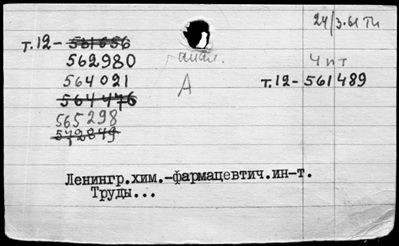 24/3.61 ТП
т.12- 561656
562980
564021
564476
565298
572849
анал.
А
4 пт
т.12- 561489
Ленингр.хим.-фармацевтич.ин-т.
Труды...